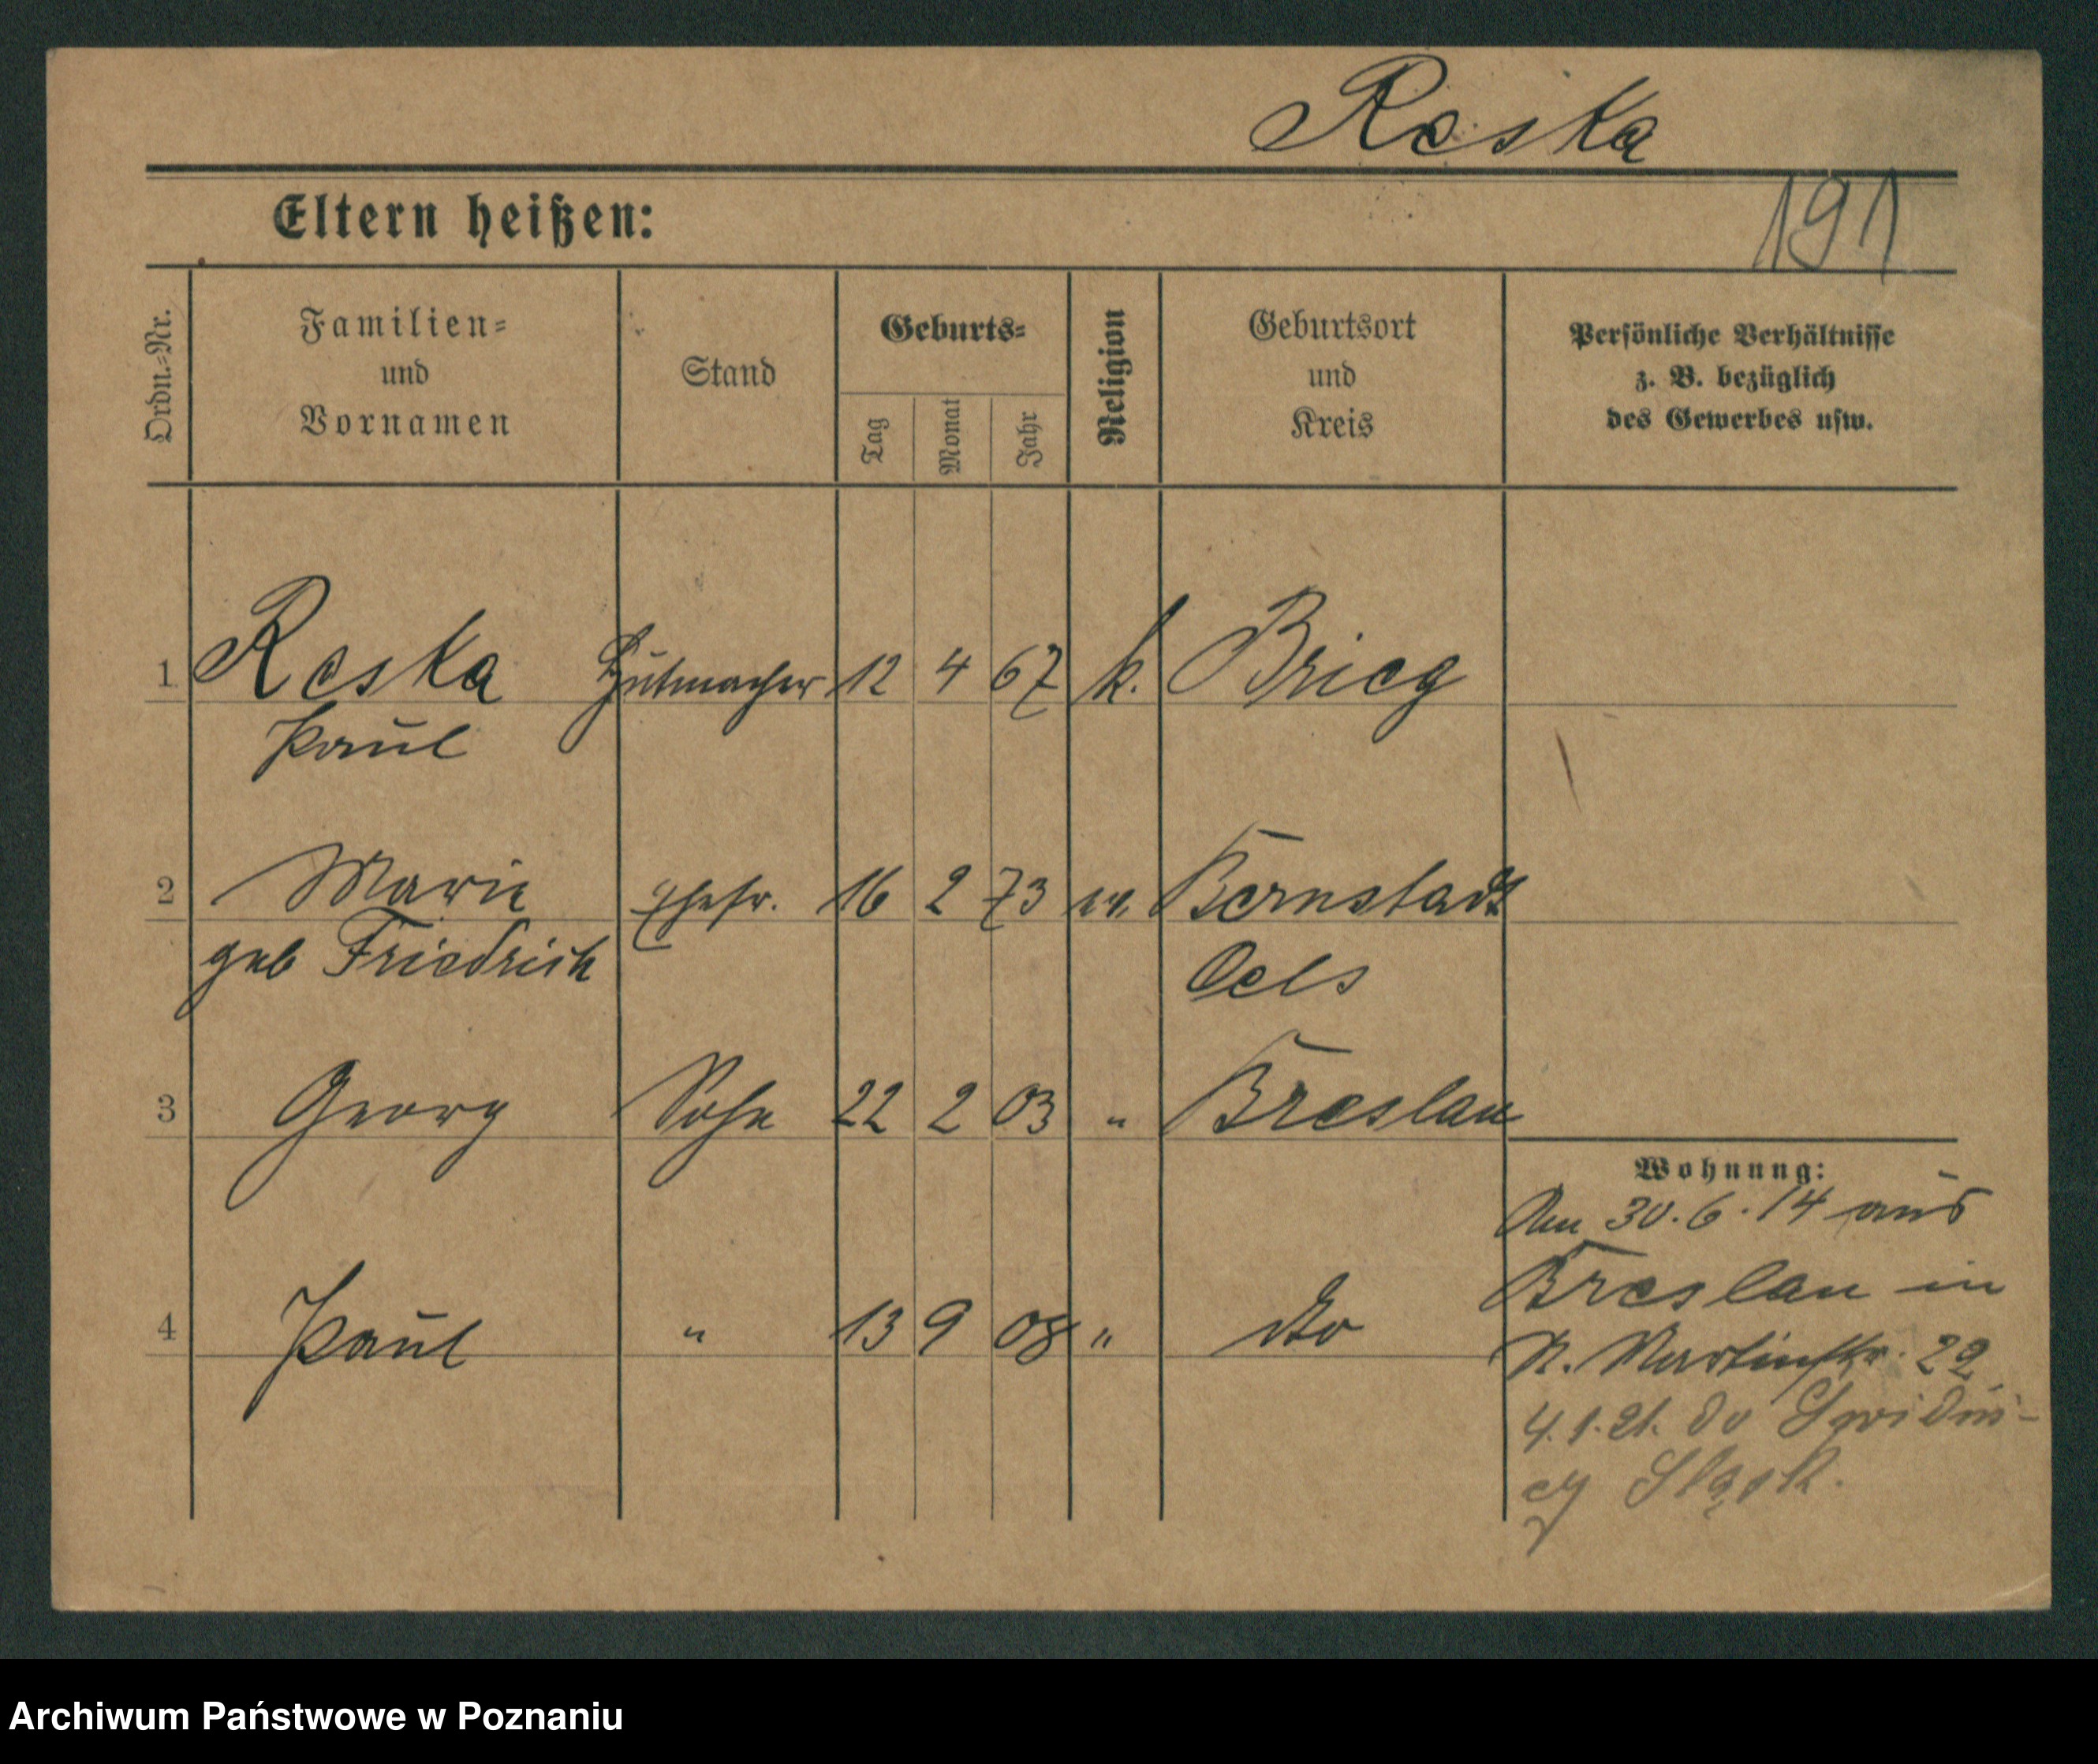 Reska
Eltern heißen:
191
Ordn.-Nr.
Familien-
und
Vornamen
Stand
Geburts-
Tag
Monat
Jahr
Religion
Geburtsort
und
Kreis
Persönliche Verhältnisse
z. B. bezüglich
des Gewerbes usw.
1 Reska Hutmacher 12 4 67 k. Brieg
Paul
2 Marie Ehefr. 16 2 73 ev. Bernstadt
geb Friedrich Oels
3 Georg Sohn 22 2 03 " Breslau
Wohnung:
Am 30.6.14 aus
Breslau in
4 Paul " 13 9 08 " dto
N. Martinstr. 22
4.1.21. do Świdni-
cy Śląsk.
Archiwum Państwowe w Poznaniu